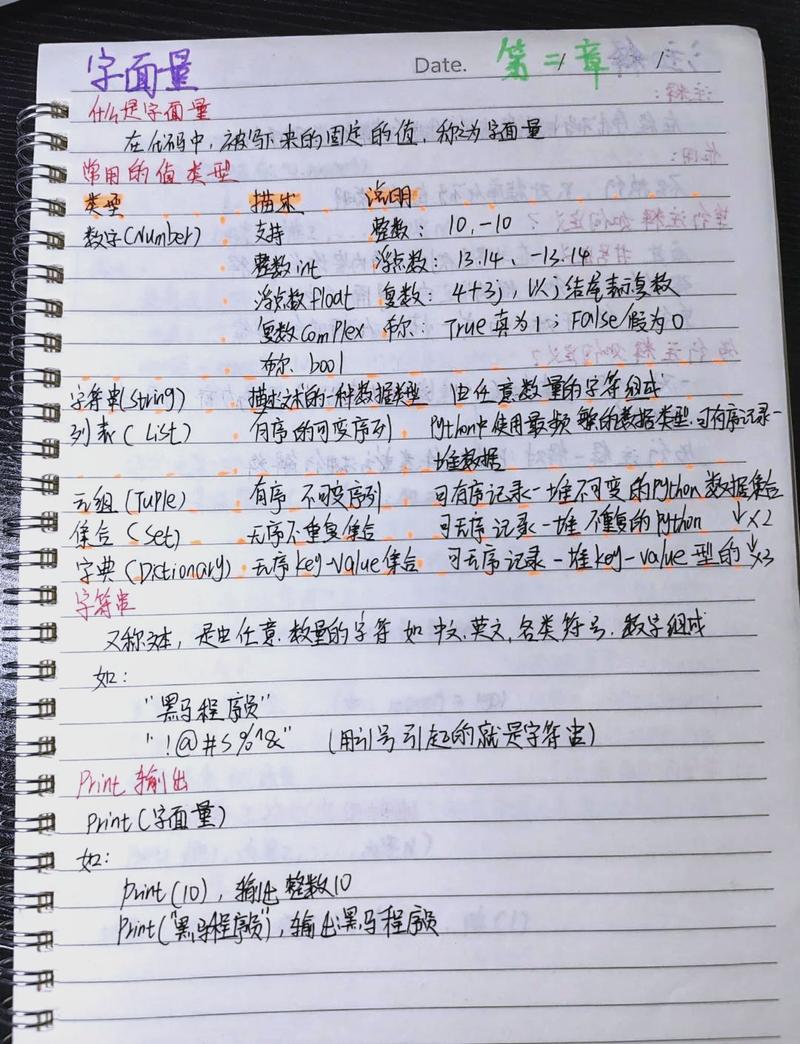 字面量 Date. 第二章
什么是字面量
在代码中，被写下来的固定的值，称为字面量
常用的值类型
类型 描述 说明
数字(Number) 支持 整数：10，-10
整数int 浮点数：13.14、-13.14
浮点数float 复数：4+3j，以j结尾表示复数
复数complex 布尔：True真为1；False假为0
布尔 bool
字符串(String) 描述文本的一种数据类型 由任意数量的字符组成
列表(List) 有序的可变序列 Python中使用最频繁的数据类型.可有序记录一
堆数据
元组(Tuple) 有序 不可变序列 可有序记录一堆不可变的Python数据集合
集合(Set) 无序不重复集合 可无序记录一堆不重复的Python ↓×2
字典(Dictionary) 无序key-value集合 可无序记录一堆key-value型的↓×3
字符串
又称文本，是由任意数量的字符 如中文，英文，各类符号，数字组成
如：
"黑马程序员"
"！@#$%^&" (用引号引起的就是字符串)
Print 输出
Print(字面量)
如：
Print(10)，输出整数10
Print("黑马程序员")，输出黑马程序员